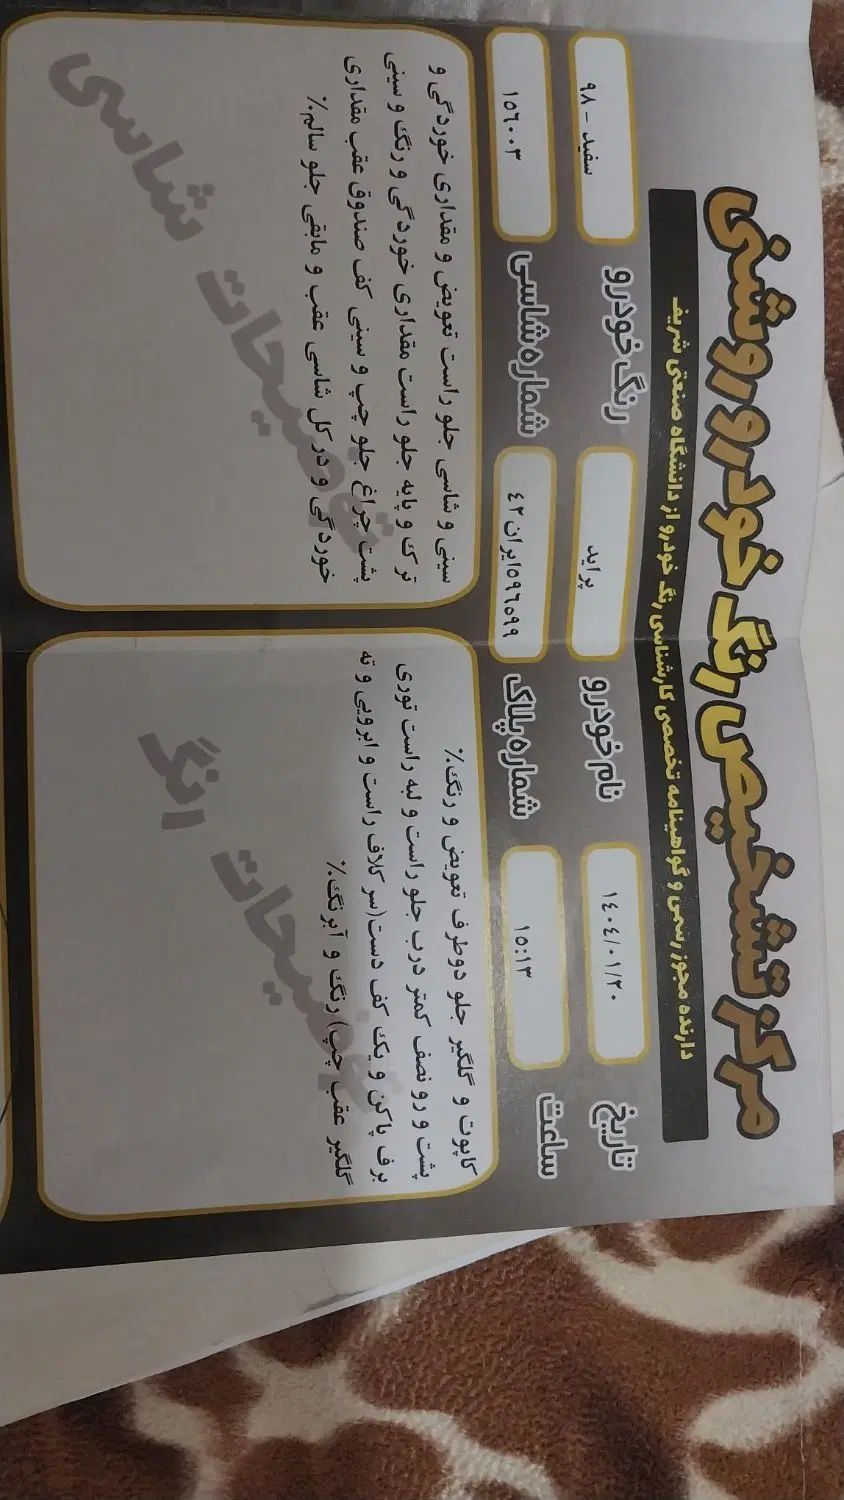 مرکز تشخیص رنگ خودرو روشنی
دارنده مجوز رسمی و گواهینامه تخصصی کارشناسی رنگ خودرو از دانشگاه صنعتی شریف
تاریخ ۱۴۰۴/۰۱/۲۰ نام خودرو پراید رنگ خودرو سفید - ۹۸
ساعت ۱۵:۱۳ شماره پلاک ۵۹۶۵۹۹ایران۴۲ شماره شاسی ۱۵۶۰۰۳
توضیحات رنگ
کاپوت و گلگیر جلو دوطرف تعویض و رنگ.%
پشت و رو نصف کمتر درب جلو راست و لبه راست توری
برف پاکن و یک کف دست(سر کلاف راست و ابرویی و ته
گلگیر عقب چپ) رنگ و آبرنگ.%
توضیحات شاسی
سینی و شاسی جلو راست تعویض و مقداری خوردگی و
ترک و پایه جلو راست مقداری خوردگی و رنگ و سینی
پشت چراغ جلو چپ و سینی کف صندوق عقب مقداری
خوردگی و در کل شاسی عقب و مابقی جلو سالم.%